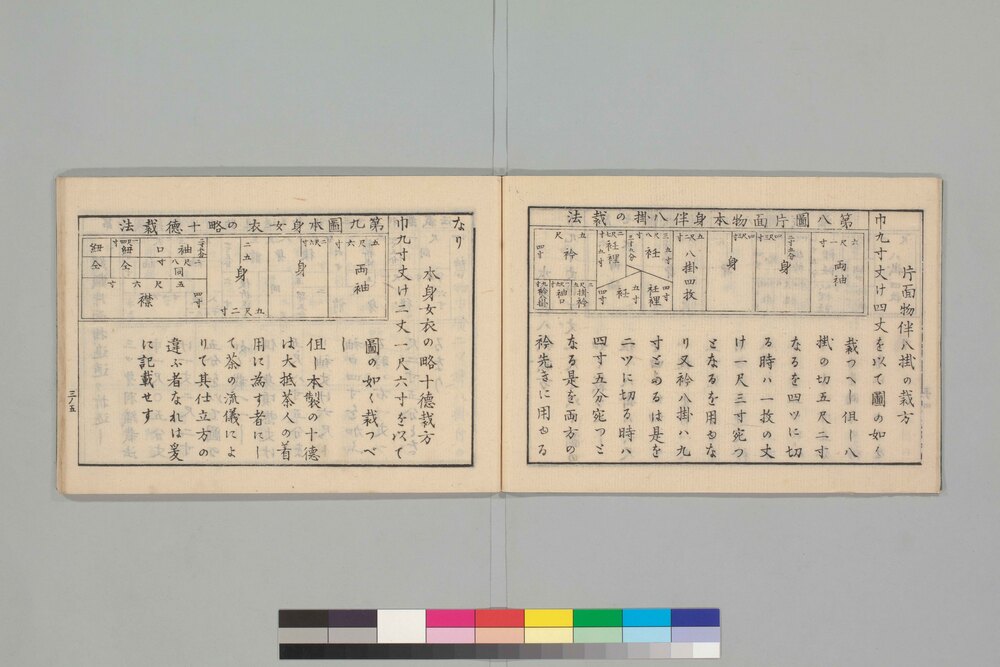 片面物伴八掛の裁方
巾九寸丈け四丈を以て圖の如く
裁つべし但し八
掛の切五尺二寸
なるを四ツに切
る時ハ一枚の丈
け一尺三寸宛つ
となるを用ゐな
り又衿八掛ハ九
寸とあるは是を
二ツに切る時ハ
四寸五分宛つと
なる是を両方の
衿先きに用ゐる
第八圖片面物本身伴八掛の裁法
六尺一寸
両袖
身
身
五尺二寸
八掛四枚
衽
衽裡
衽
衽裡
五尺
四寸
衿
掛衿
袖口
なり
本身女衣の略十徳裁方
巾九寸丈け二丈一尺六寸を以て
圖の如く裁つべ
し
但し本製の十徳
は大抵茶人の着
用に為す者にし
て茶の流儀によ
りて其仕立方の
違ふ者なれは爰
に記載せす
第九圖本身女衣の略十徳裁法
五尺六寸
両袖
身
身
二五
九尺二寸
袖口
八寸
同
紐
紐
仝
仝
五尺六寸
四寸
襟
三ノ五